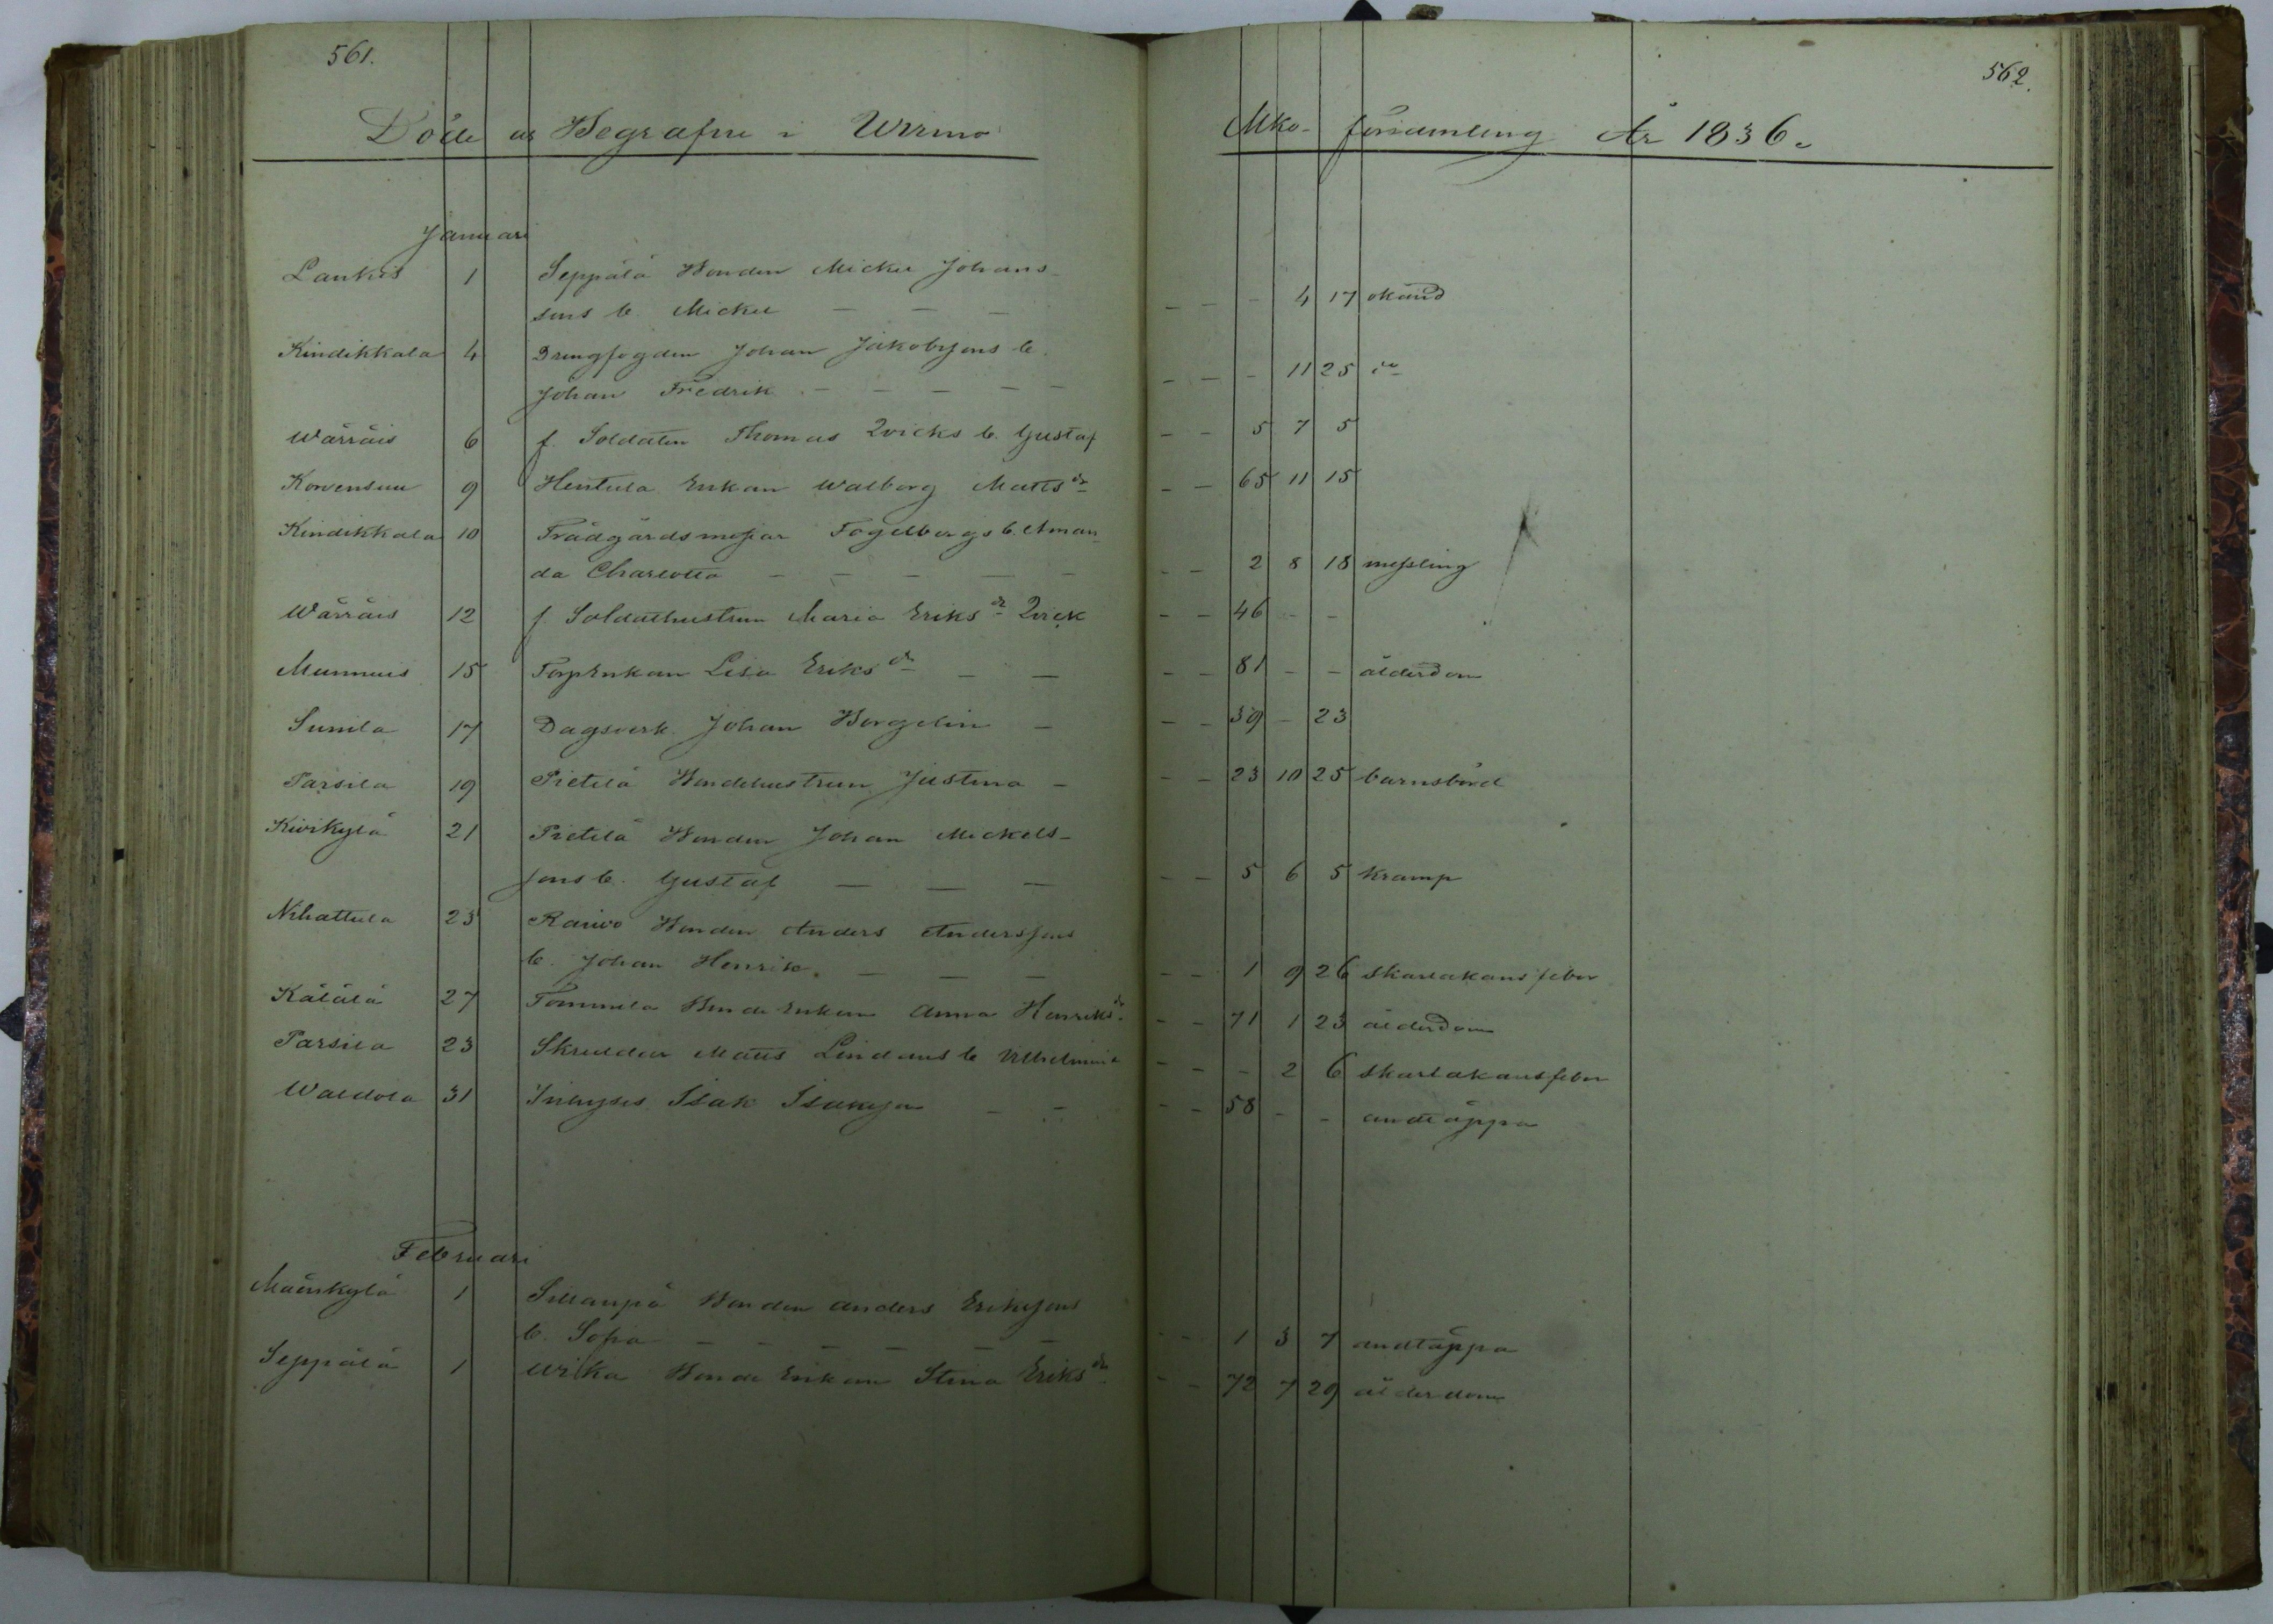 561.
562.
Döde oc Begrafne i Wirmo Mko- församling År 1836.
Januari
Lankis 1 Seppälä Bonden Mickel Johans-
sons b. Mickel — — — — — — 4 17 okänd
Kindikkala 4 Drengfogden Johan Jakobssons b.
Johan Fredrik — — — — — — — — 11 25 do
Wärräis 6 f. Soldaten Thomas Qvicks b. Gustaf — — 5 7 5
Korvensuu 9 Hentula Enkan Walborg Matts dr — — 65 11 15
Kindikkala 10 Trädgårdsmestar Fogelbergs b. Aman-
da Charlotta — — — — — — — 2 8 18 messling
Wärräis 12 f. Soldathustrun Maria Eriks dr Qvick — — 46 — —
Munnuis 15 TorpEnkan Lisa Eriks dr — — — — 81 — — ålderdom
Sunila 17 Dagsverk. Johan Borgelin — — — 39 — 23
Tarsila 19 Pietilä Bondehustrun Justina — — — 23 10 25 barnsbörd
Kivikylä 21 Pietilä Bonden Johan Mickels-
sons b. Gustaf — — — — — 5 6 5 kramp
Nihattula 23 Raivo Bonden Anders Anderssons
b. Johan Henrik. — — — — — 1 9 26 skarlakansfeber
Kälälä 27 Tommila Bonde Enkan Anna Henriks dr — — 71 1 23 ålderdom
Tarsila 23 Skreddar Matts Lindens b. Vilhelmina — — — 2 6 skarlakansfeber
Waldola 31 Inhyses Isak Isaksson — — — — 58 — — andtäppa
Februari
Mäenkylä 1 Sillanpä Bonden Anders Erikssons
b. Sofia — — — — — — — 1 3 7 andtäppa
Seppälä 1 Wilka Bonde Enkan Stina Eriks dr — — 72 7 29 ålderdom